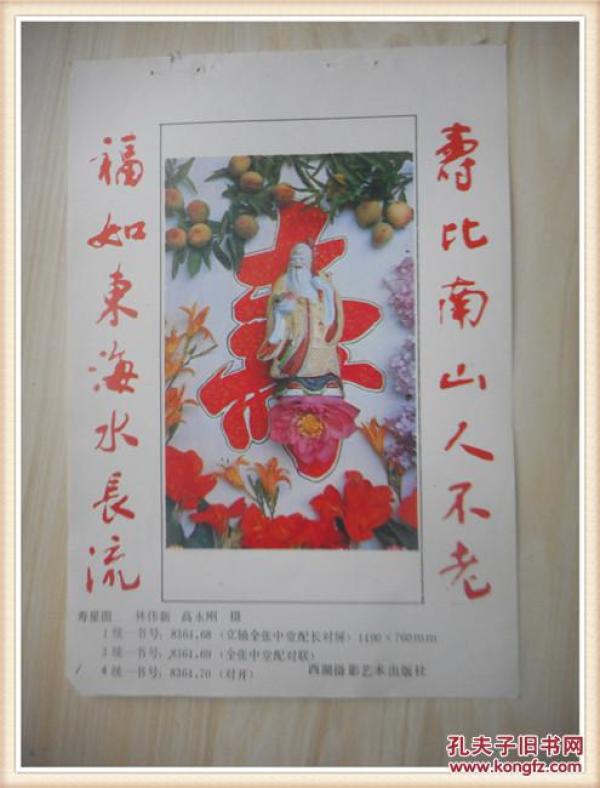 壽比南山人不老
福如東海水長流
壽
寿星图 林伟新 高永刚 摄
1 统一书号：8364.68（立轴全张中堂配长对屏）1400×760mm
3 统一书号：8364.69（全张中堂配对联）
4 统一书号：8364.70（对开） 西湖摄影艺术出版社
孔夫子旧书网
www.kongfz.com